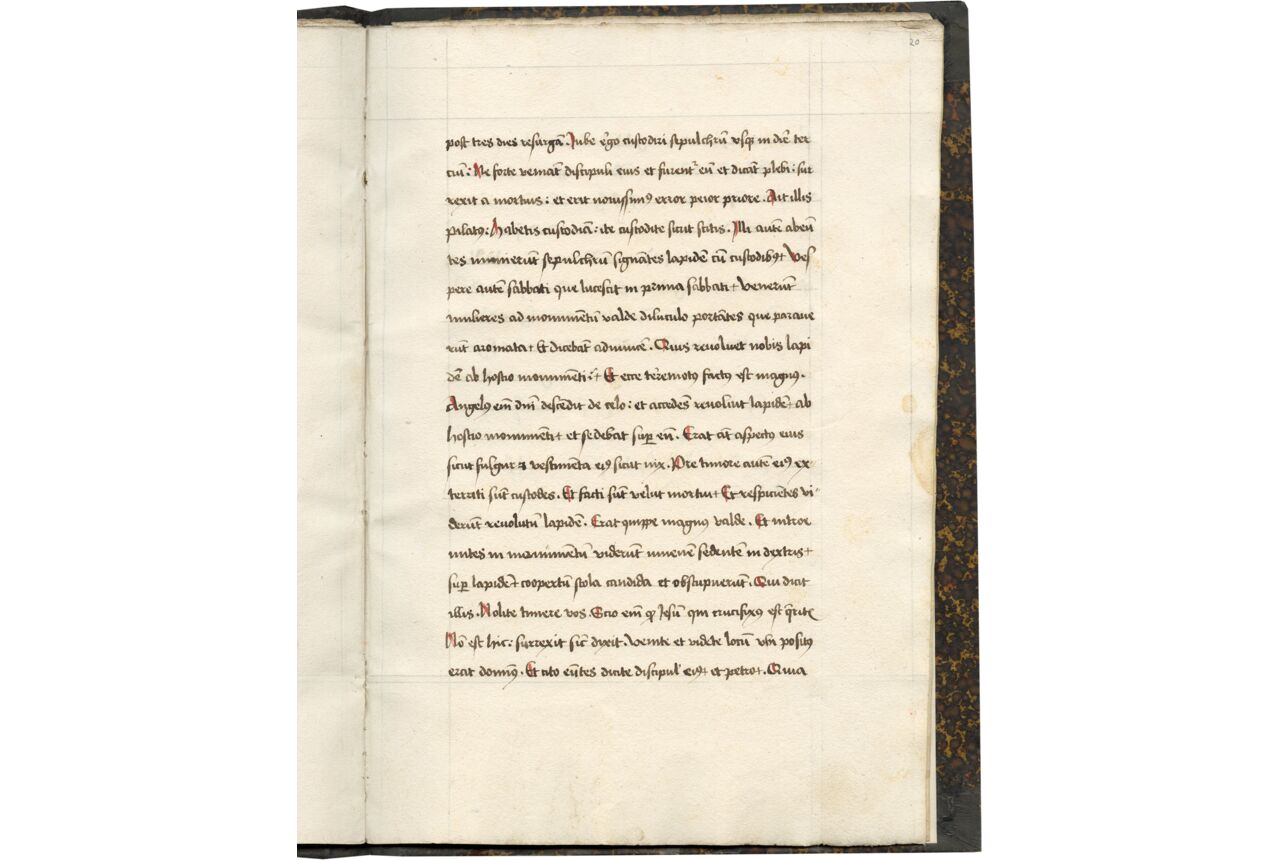 20
post tres dies resurgā. Iube ergo custodiri sepulchrū vsqꝫ in diē ter
ciū: Ne forte veniāt discipuli eius et furent᷑ eū et dicāt plebi: sur
rexit a mortuis: et erit nouissimꝰ error peior priore. Ait illis
pilatꝰ: Habetis custodiā: ite custodite sicut scitis. Illi autē abeū
tes munierūt sepulchrū signātes lapidē cū custodibꝰ+ Ves
pere autē sabbati que lucescit in prima sabbati+ Venerūt
mulieres ad monumētū valde diluculo portātes que paraue
rūt aromata+ Et dicebāt adinuicē. Quis reuoluet nobis lapi
dē ab hostio monumēti:+ Et ecce terremotꝰ factꝰ est magnꝰ.
Angelꝰ em̄ dn̄i descēdit de celo: et accedēs reuoluit lapidē+ ab
hostio monumēti+ et sedebat suꝑ eū. Erat āt aspectꝰ eius
sicut fulgur ⁊ vestimēta eiꝰ sicut nix. Pre timore autē eiꝰ ex
territi sūt custodes. Et facti sūt velut mortui+ Et respiciētes vi
derūt reuolutū lapidē. Erat quippe magnꝰ valde. Et introe
untes in monumētū viderūt iuuenē sedentē in dextris+
suꝑ lapidē+ coopertū stola candida et obstupuerūt. Qui dicit
illis. Nolite timere vos. Scio em̄ ꝙ Jesū qui crucifixꝰ est q̄ritꝭ
Nō est hic: surrexit sic̄ dixit. Venite et videte locū vbi positꝰ
erat dominꝰ. Et cito eūtes dicite discipul' eiꝰ+ et petro+. Quia